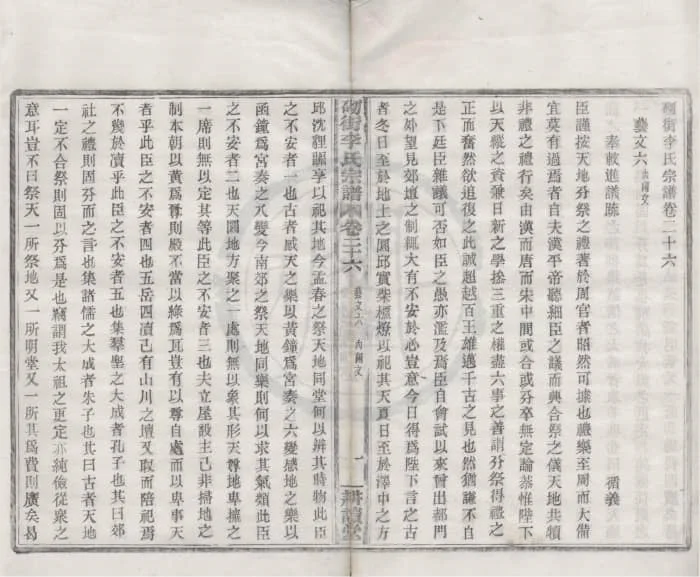 砌街李氏宗譜卷二十六
藝文六 內閣文
奉敕進議疏
循義
臣謹按天地分祭之禮著於周官者昭然可據也蓋樂至周而大備
宜莫有過焉者自夫漢平帝聽細臣之議而興合祭之儀天地共犢
非禮之禮行矣由漢而唐而宋中間或合或分卒無定論恭惟陛下
以天縱之資兼日新之學捴三重之權盡六事之善謂分祭得禮之
正而奮然欲追復之此誠超越百王雄邁千古之見也然猶謙不自
是下廷臣雜議可否如臣之愚亦濫及焉臣自會試以來曾出都門
之外望見郊壇之制輒大有不安於心豈意今日得爲陛下言之古
者冬日至於地上之圜邱實柴槱燎以祀其天夏日至於澤中之方
砌街李氏宗譜 卷二十六 藝文六 內閣文 一 耕讀堂
邱沈貍疈享以祀其地今孟春之祭天地同堂何以辨其時物此臣
之不安者一也古者感天之樂以黃鐘爲宮奏之六變感地之樂以
函鐘爲宮奏之八變今南郊之祭天地同樂則何以求其氣類此臣
之不安者二也天圜地方聚之一處則無以象其形天尊地卑擁之
一席則無以定其等此臣之不安者三也夫立屋設主已非掃地之
制本朝以黃爲尊則殿不當以綠爲瓦豈有以尊自處而以卑事天
者乎此臣之不安者四也五岳四瀆已有山川之壇又取而陪祀焉
不幾於瀆乎此臣之不安者五也集羣聖之大成者孔子也其曰郊
社之禮則固分而之言也集諸儒之大成者朱子也其曰古者天地
一定不合祭則固以分爲是也竊謂我太祖之更定亦純儉從衆之
意耳豈不曰祭天一所祭地又一所明堂又一所其爲費則廣矣曷